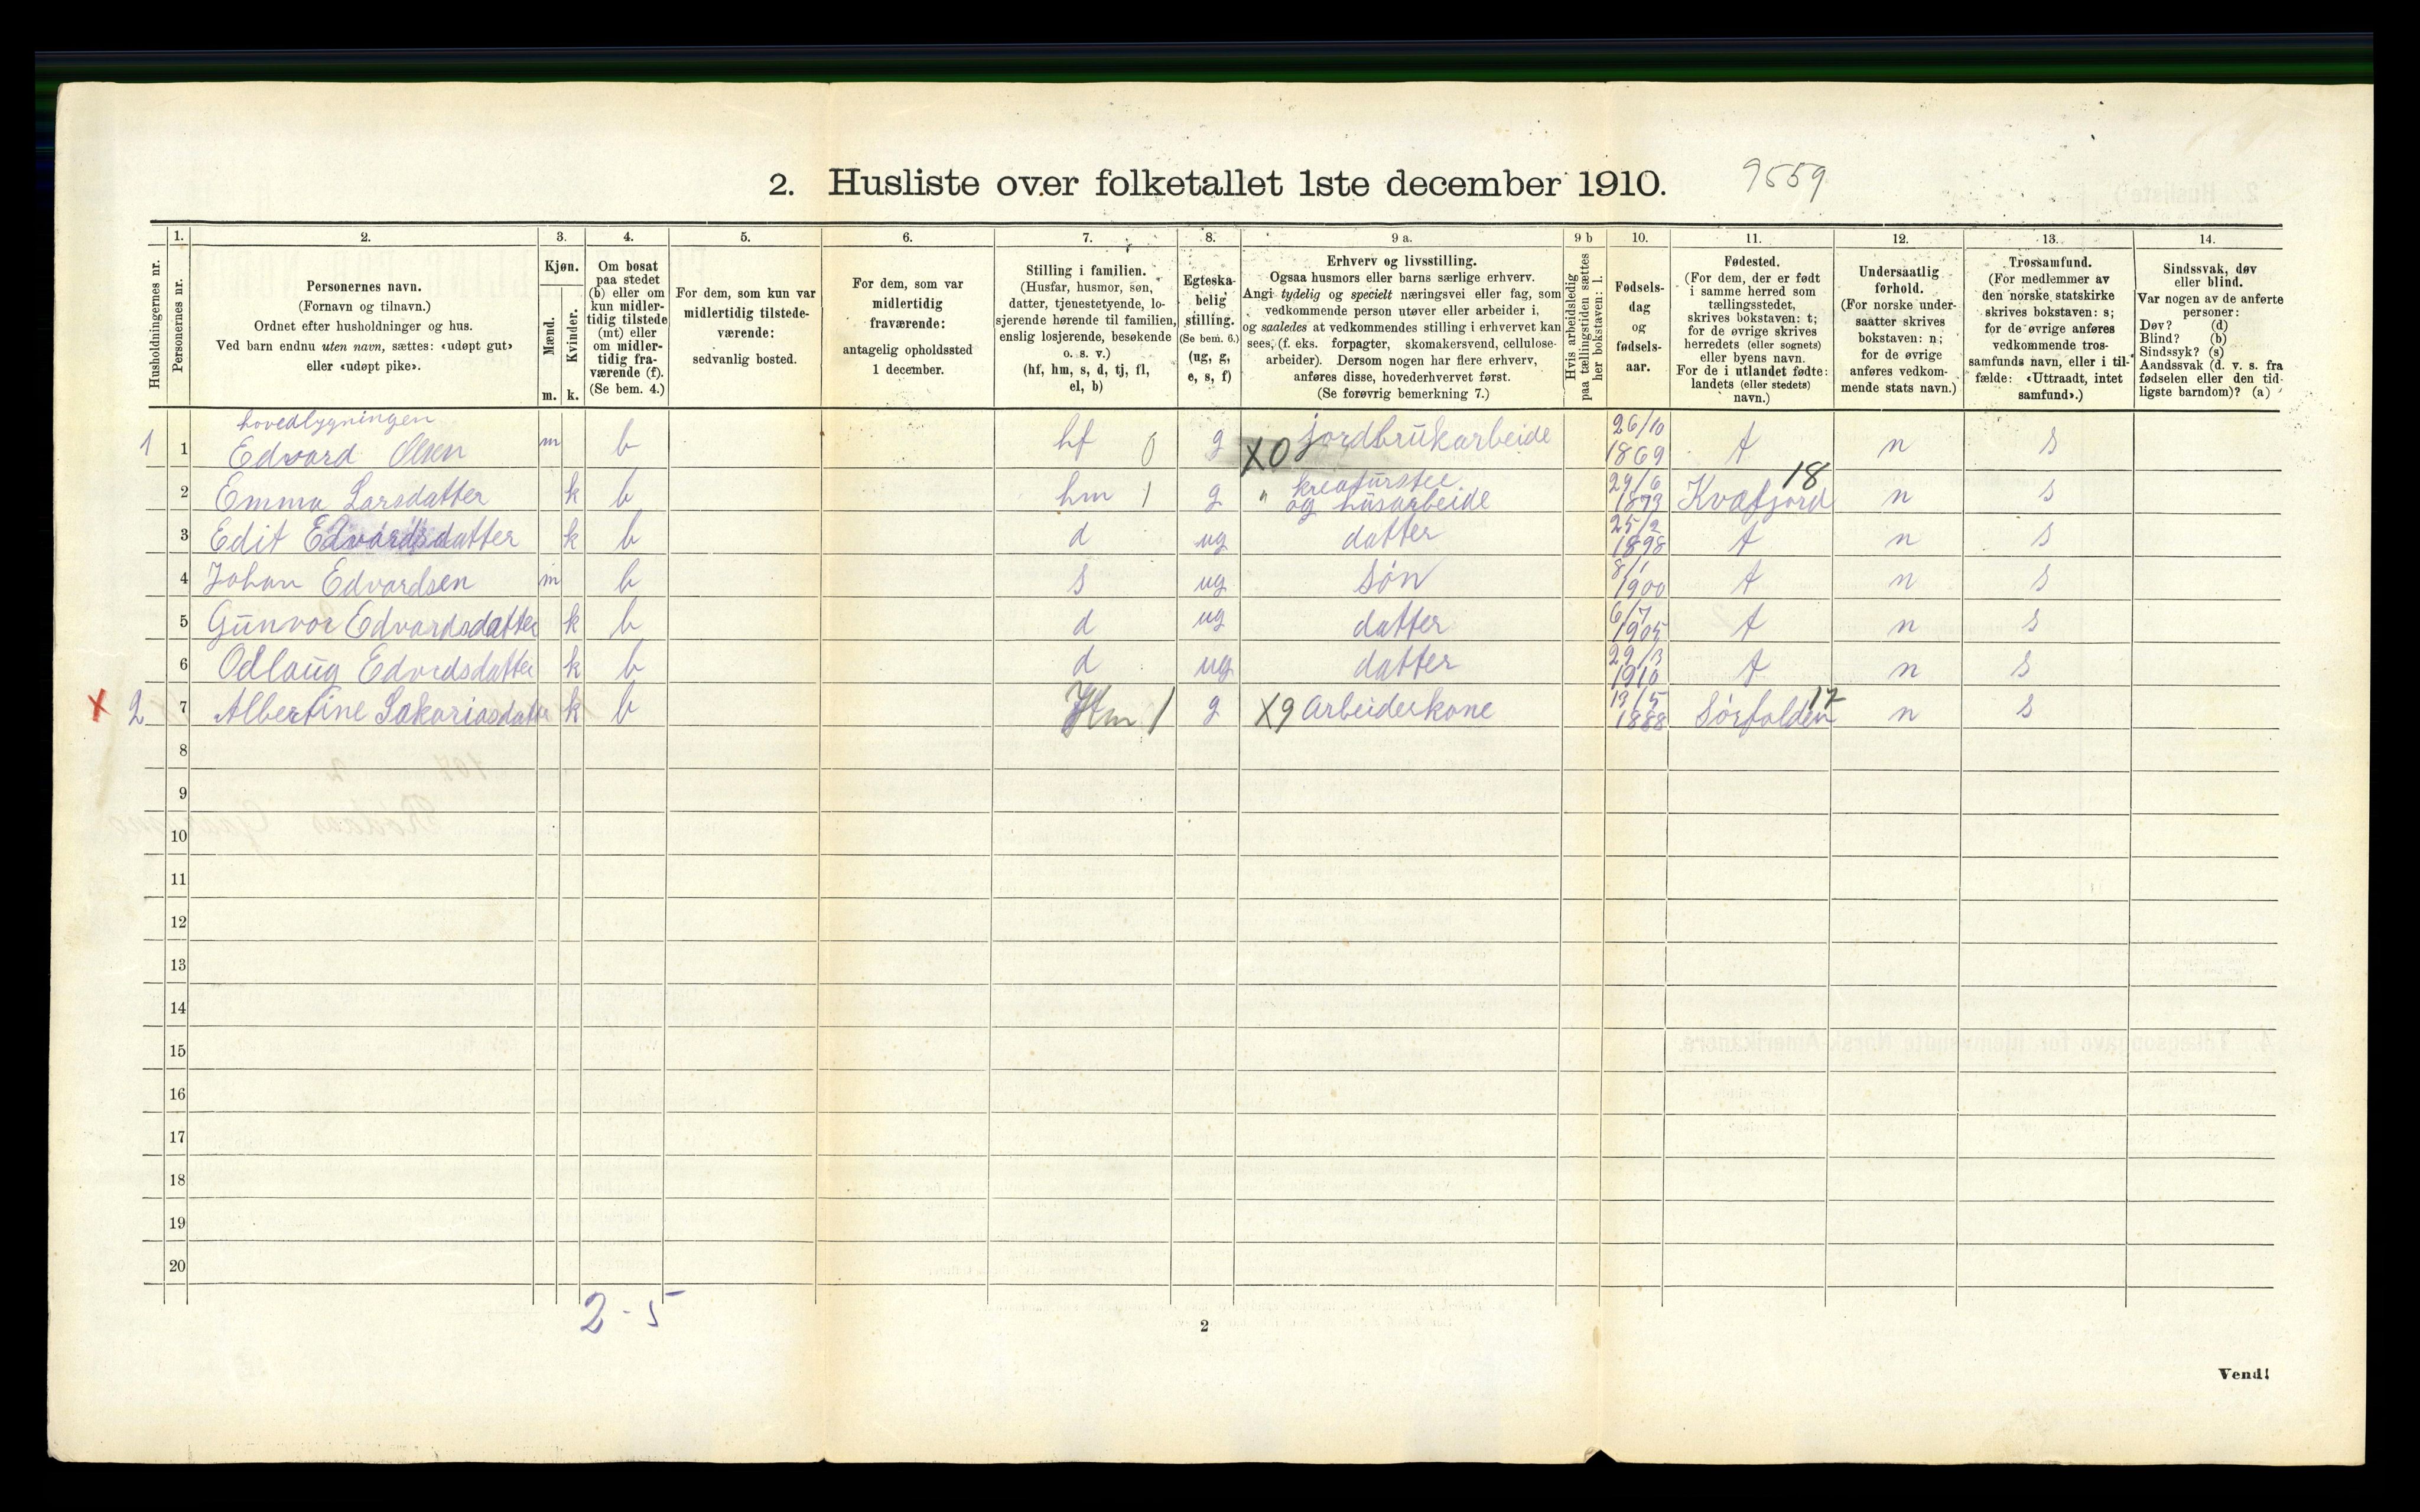 2. Husliste over folketallet 1ste december 1910. 9559
1. 2. 3. 4. 5. 6. 7. 8. 9 a. 9 b 10. 11. 12. 13. 14.
Husholdningernes nr.
Personernes nr.
Personernes navn.
(Fornavn og tilnavn.)
Ordnet efter husholdninger og hus.
Ved barn endnu uten navn, sættes: «udøpt gut»
eller «udøpt pike».
Kjøn.
Mænd.
Kvinder.
m. k.
Om bosat
paa stedet
(b) eller om
kun midler-
tidig tilstede
(mt) eller
om midler-
tidig fra-
værende (f).
(Se bem. 4.)
For dem, som kun var
midlertidig tilstede-
værende:
sedvanlig bosted.
For dem, som var
midlertidig
fraværende:
antagelig opholdssted
1 december.
Stilling i familien.
(Husfar, husmor, søn,
datter, tjenestetyende, lo-
sjerende hørende til familien,
enslig losjerende, besøkende
o. s. v.)
(hf, hm, s, d, tj, fl,
el, b)
Egteska-
belig
stilling.
(Se bem. 6.)
(ug, g,
e, s, f)
Erhverv og livsstilling.
Ogsaa husmors eller barns særlige erhverv.
Angi tydelig og specielt næringsvei eller fag, som
vedkommende person utøver eller arbeider i,
og saaledes at vedkommendes stilling i erhvervet kan
sees, (f. eks. forpagter, skomakersvend, cellulose-
arbeider). Dersom nogen har flere erhverv,
anføres disse, hovederhvervet først.
(Se forøvrig bemerkning 7.)
Hvis arbeidsledig
paa tællingstiden sættes
her bokstaven: l.
Fødsels-
dag
og
fødsels-
aar.
Fødested.
(For dem, der er født
i samme herred som
tællingsstedet,
skrives bokstaven: t;
for de øvrige skrives
herredets (eller sognets)
eller byens navn.
For de i utlandet fødte:
landets (eller stedets)
navn.)
Undersaatlig
forhold.
(For norske under-
saatter skrives
bokstaven: n;
for de øvrige
anføres vedkom-
mende stats navn.)
Trossamfund.
(For medlemmer av
den norske statskirke
skrives bokstaven: s;
for de øvrige anføres
vedkommende tros-
samfunds navn, eller i til-
fælde: «Uttraadt, intet
samfund».)
Sindssvak, døv
eller blind.
Var nogen av de anførte
personer:
Døv? (d)
Blind? (b)
Sindssyk? (s)
Aandssvak (d. v. s. fra
fødselen eller den tid-
ligste barndom)? (a)
hovedbygningen
1 1 Edvard Olsen m b hf 0 g X0 jordbrukarbeide 26/10 1869 t n s
2 Emma Larsdatter k b hm 1 g " kreaturstee og husarbeide 29/6 1873 Kvæfjord 18 n s
3 Edit Edvardsdatter k b d ug datter 25/2 1898 t n s
4 Johan Edvardsen m b s ug søn 8/1 1900 t n s
5 Gunvor Edvardsdatter k b d ug datter 6/7 1905 t n s
6 Odlaug Edvrdsdatter k b d ug datter 29/3 1910 t n s
X 2 7 Albertine Sakariasdatter k b Hm 1 g X9 Arbeiderkone 13/5 1888 Sørfolden 17 n s
8
9
10
11
12
13
14
15
16
17
18
19
20
2 - 5
2
Vend!